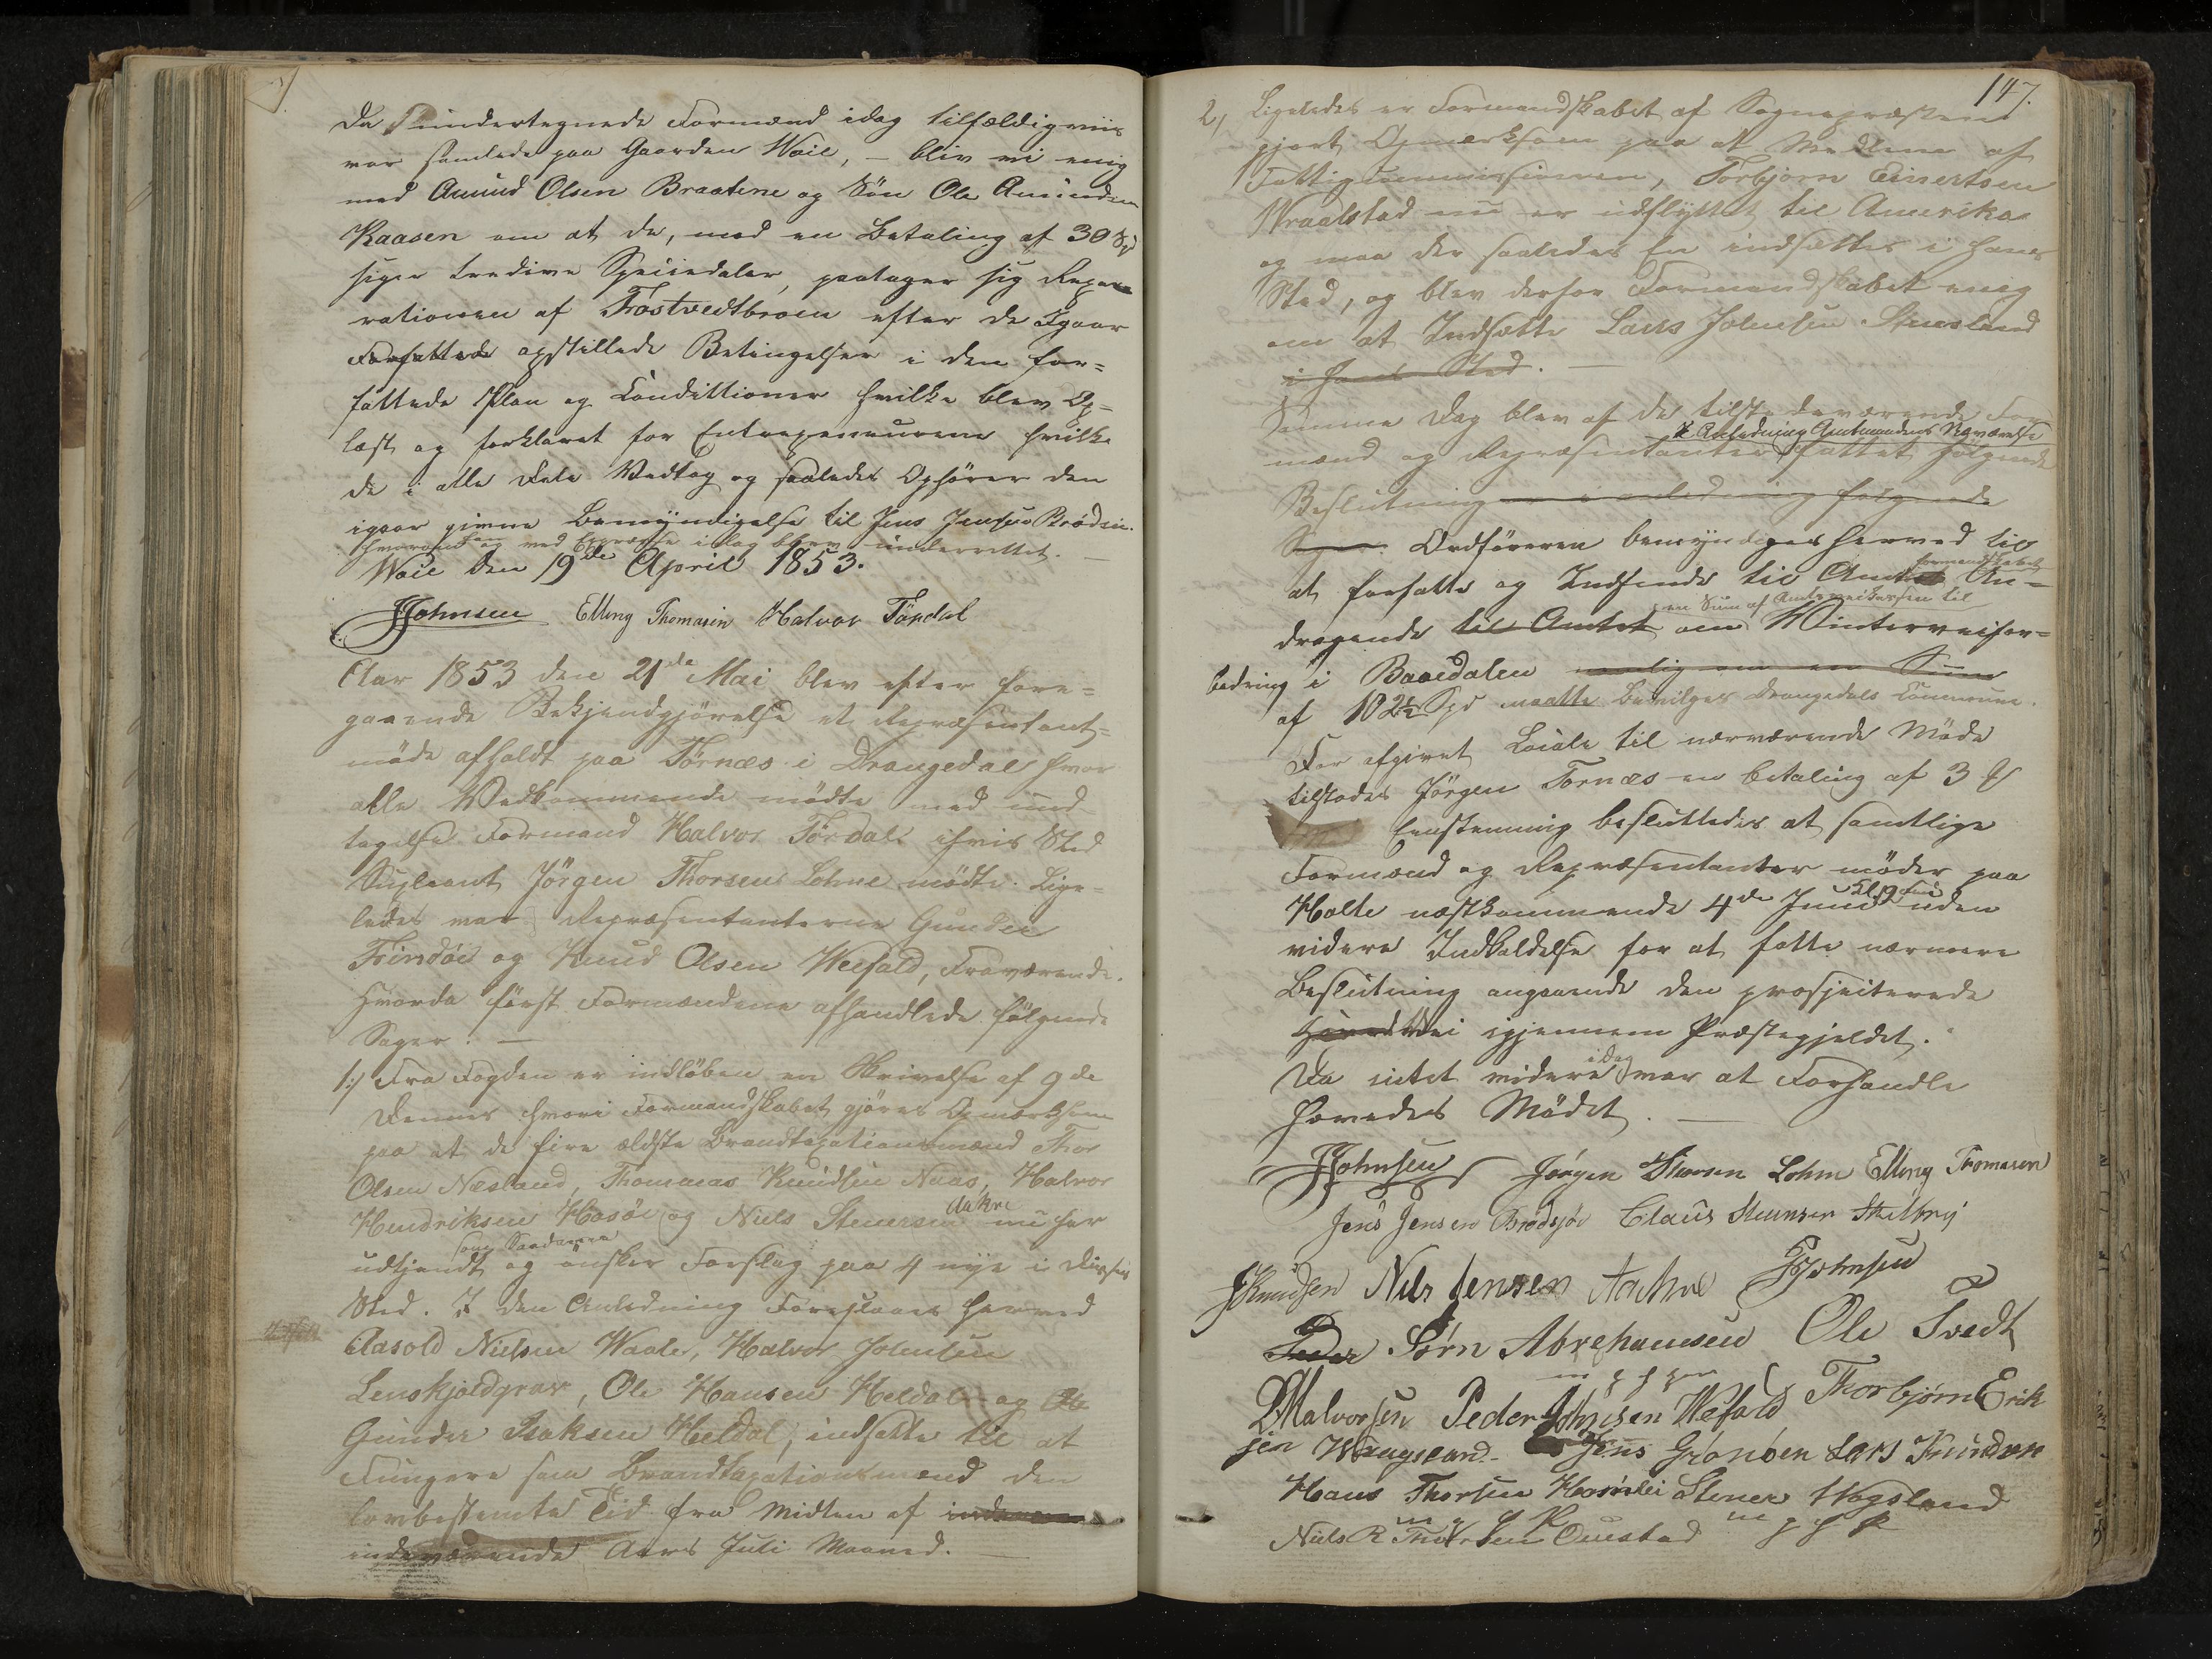 Da undertegnede Formænd idag tilfældigviis
var samlede paa Gaarden Woie, – bliv vi enig
med Amund Olsen Braatene og Søn Ole Amundsen
Kaasen om at de, mod en Betaling af 30 Spd
siger tredive Speciedaler, paatager sig Repa-
rationen af Tostvedtbroen efter de Igaar
Forfattede opstillede Betingelser i den for=
fattede Plan og Conditioner hvilke blev Op=
læst og forklaret for Entrepeneurerne hvilke
de i alle Dele Vedtog og saaledes Ophører den
igaar givne Bemyndigelse til Jens Jensen Brødsiø.
hvorom han ved Expresse idag blev underrettet. –
Woie den 19de April 1853.
JJohnsen Elling Thomasen Halvor Tørdal
Aar 1853 den 21de Mai blev efter fore=
gaaende Bekjendgjørelse et Repræsentant=
møde afholdt paa Tørnæs i Drangedal hvor
alle Vedkommende mødte med und
tagelse Formand Halvor Tørdal i hvis Sted
Supleant Jørgen Thorsen Lohne mødte. Lige=
ledes var Repræsentanterne Gunder
og Knud Olsen Weefald, Fraværende.
Hvorda først Formændene afhandlede følgende
Sager: –
1:/ Fra Fogden er indløben en Skrivelse af 9de
Dennes hvori Formandskabet gjøres Opmærksom
paa at de fire ældste Brandtaxationsmænd Thor
Olsen Næsland, Thommas Knudsen Naas, Halvor
Aakre
Hendriksen Hosøe og Niels Stenersen nu har
som Saadanne
udtjendt og ønsker Forslag paa 4 nye i Disses
Sted. I den Anledning Foreslaaes herved
Aasold Nielsen Waaler, Halvor Johnsen
Lenskjoldgrav, Ole Hansen Heldal og
Gunder Isaksen Heldal, indsatte til at
Fungere som Brandtaxationsmænd den
lovbestemte Tid fra Midten af
indeværende Aars Juli Maaned. –
147.
2, Ligeledes er Formandskabet af Sognepræsten
gjort Opmærksom paa at Medlem af
Fattigcommissionen, Torbjørn Einertsen
Wraalstad nu er udflyttet til Amerika
og maa der saaledes En indsættes i hans
Sted, og blev derfor Formandskabet enig
om at Indsætte Lars Johnsen Stensland
i hans Sted. –
Samme Dag blev af de tilstedeværende For
i Anledning Amtmandens Nærværelse
mænd og Repræsentanter fattet følgende
Beslutning i anledning følgende
Sager: Ordføreren bemyndiges herved til
Formandskabets
at forfatte og Indsende til Amtet An=
en Sum af Amtsveikassen til
dragende til Amtet om Winterveifor=
bedring i Baaedalen nemlig om en Sum
af 102½ Spd maatte bevilges Drangedals Commune.
For afgivet Locale til nærværende Møde
tilstodes Jørgen Tornæs en betaling af 3
Eenstemmig besluttedes at samtlige
Formænd og Repræsentanter møder paa
Kl 9 Fm
Holte næstkommende 4de Juni uden
videre Indkaldelse for at fatte nærmere
Beslutning angaaende den prosjecterede
Hovedvei igjennem Præstegjeldet.
idag
Da intet videre var at Forhandle
hævedes Mødet. –
JJohnsen Jørgen Thorsen Lohne Elling Thomasen
Jens Jensen Brødsjøe Claus Steensen Stilbrij
JKnudsen Nils Jensen Aakre JJohnsen
Peder Sørn Abrehamsen Ole Tvedt
m p p
DHalvorsen Peder Johnsen Wefald Thorbjørn Erik
sen Waagsland Jens Grønoen Lars Knudsen
Hans Thorsen Stener Wogsland
m p p
Niels R Thorsen Ouestad